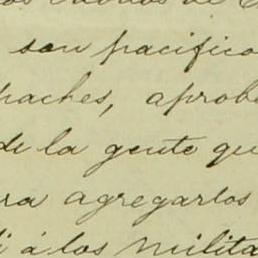 son pacifico
paches, aprob
de la gente qu
ra agregarlos
di á los milita